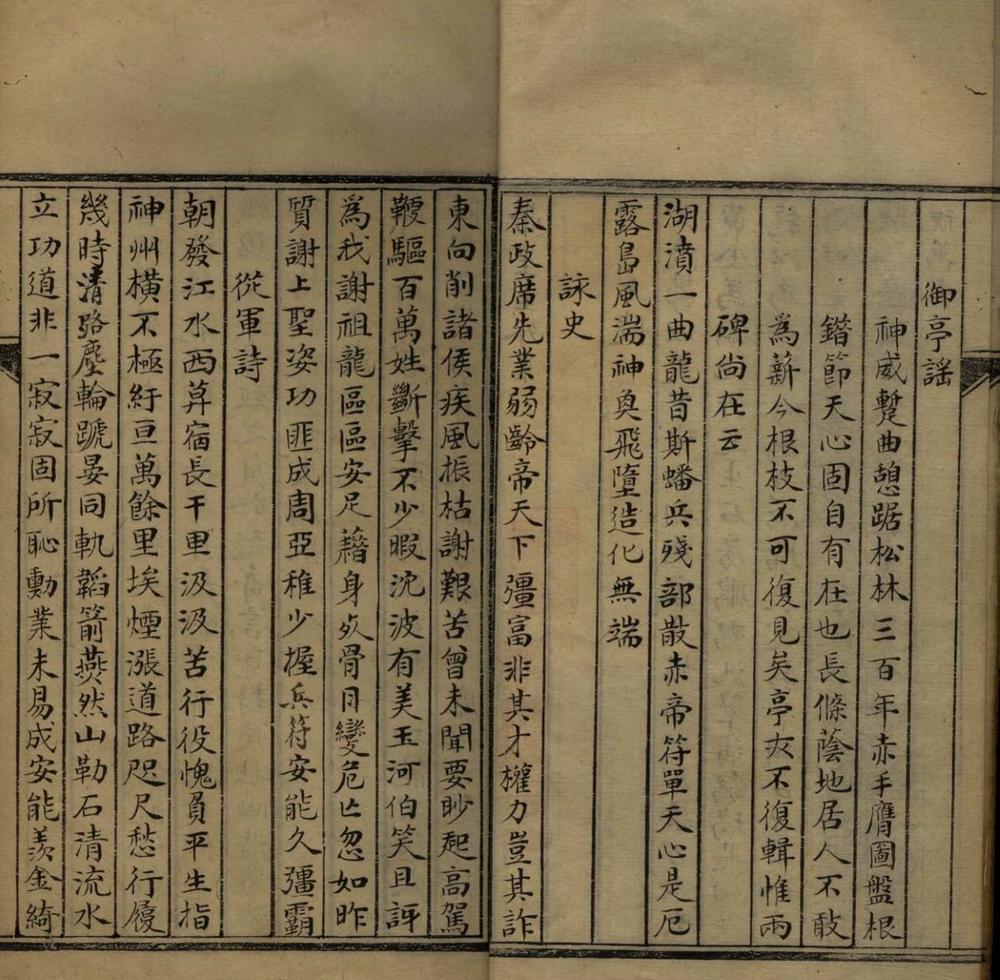 御亭謠
神威蹔曲憩踞松林三百年赤手膺圖盤根
錯節天心固自有在也長條蔭地居人不敢
為薪今根枝不可復見矣亭亦不復輯惟兩
碑尚在云
湖濆一曲龍昔斯蟠兵殘部散赤帝符單天心是厄
露島風湍神臭飛墮造化無端
詠史
秦政席先業弱齡帝天下彊富非其才權力豈其詐
東向削諸侯疾風振枯謝艱苦曾未聞要眇起高駕
鞭驅百萬姓斲擊不少暇沈波有美玉河伯笑且訝
為我謝祖龍區區安足藉身死骨目變危亡忽如昨
質謝上聖姿功匪成周亞稚少握兵符安能久彊霸
從軍詩
朝發江水西弭宿長干里汲汲苦行役愧負平生指
神州橫不極紆亘萬餘里埃煙漲道路咫尺愁行履
幾時清路塵輪蹏晏同軌韜箭燕然山勒石清流水
立功道非一寂寂固所恥勳業未易成安能羨金綺